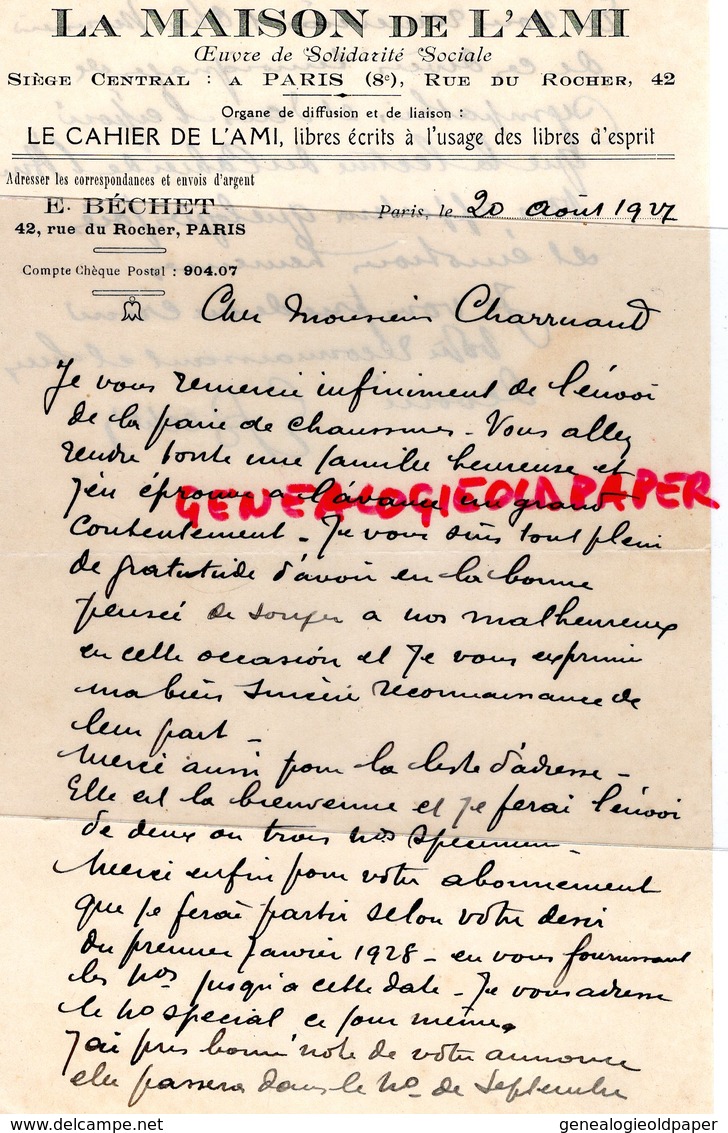 LA MAISON DE L'AMI
Œuvre de Solidarité Sociale
SIÈGE CENTRAL : A PARIS (8e), RUE DU ROCHER, 42
Organe de diffusion et de liaison :
LE CAHIER DE L'AMI, libres écrits à l'usage des libres d'esprit
Adresser les correspondances et envois d'argent
E. BÉCHET
42, rue du Rocher, PARIS
Compte Chèque Postal : 904.07
Paris, le 20 août 1927
Cher Monsieur Charruaud
Je vous remercie infiniment de l'envoi
de la paire de chaussures - Vous allez
rendre toute une famille heureuse et
j'en éprouve a l'avance un grand
GENEALOGIEOLDPAPER
contentement - Je vous suis tout plein
de gratitude d'avoir eu la bonne
pensée de songer a nos malheureux
en cette occasion et je vous exprime
ma bien sincère reconnaissance de
leur part -
Merci aussi pour la liste d'adresse -
Elle est la bienvenue et je ferai l'envoi
de deux ou trois nos specimen -
Merci enfin pour votre abonnement
que je ferai partir selon votre desir
du premier Janvier 1928 - en vous fournissant
les nos jusqu'a cette date - Je vous adresse
le no special ce jour même.
J'ai pris bonne note de votre annonce
elle passera dans le no de Septembre
www.genealogieoldpaper.com
genealogieoldpaper